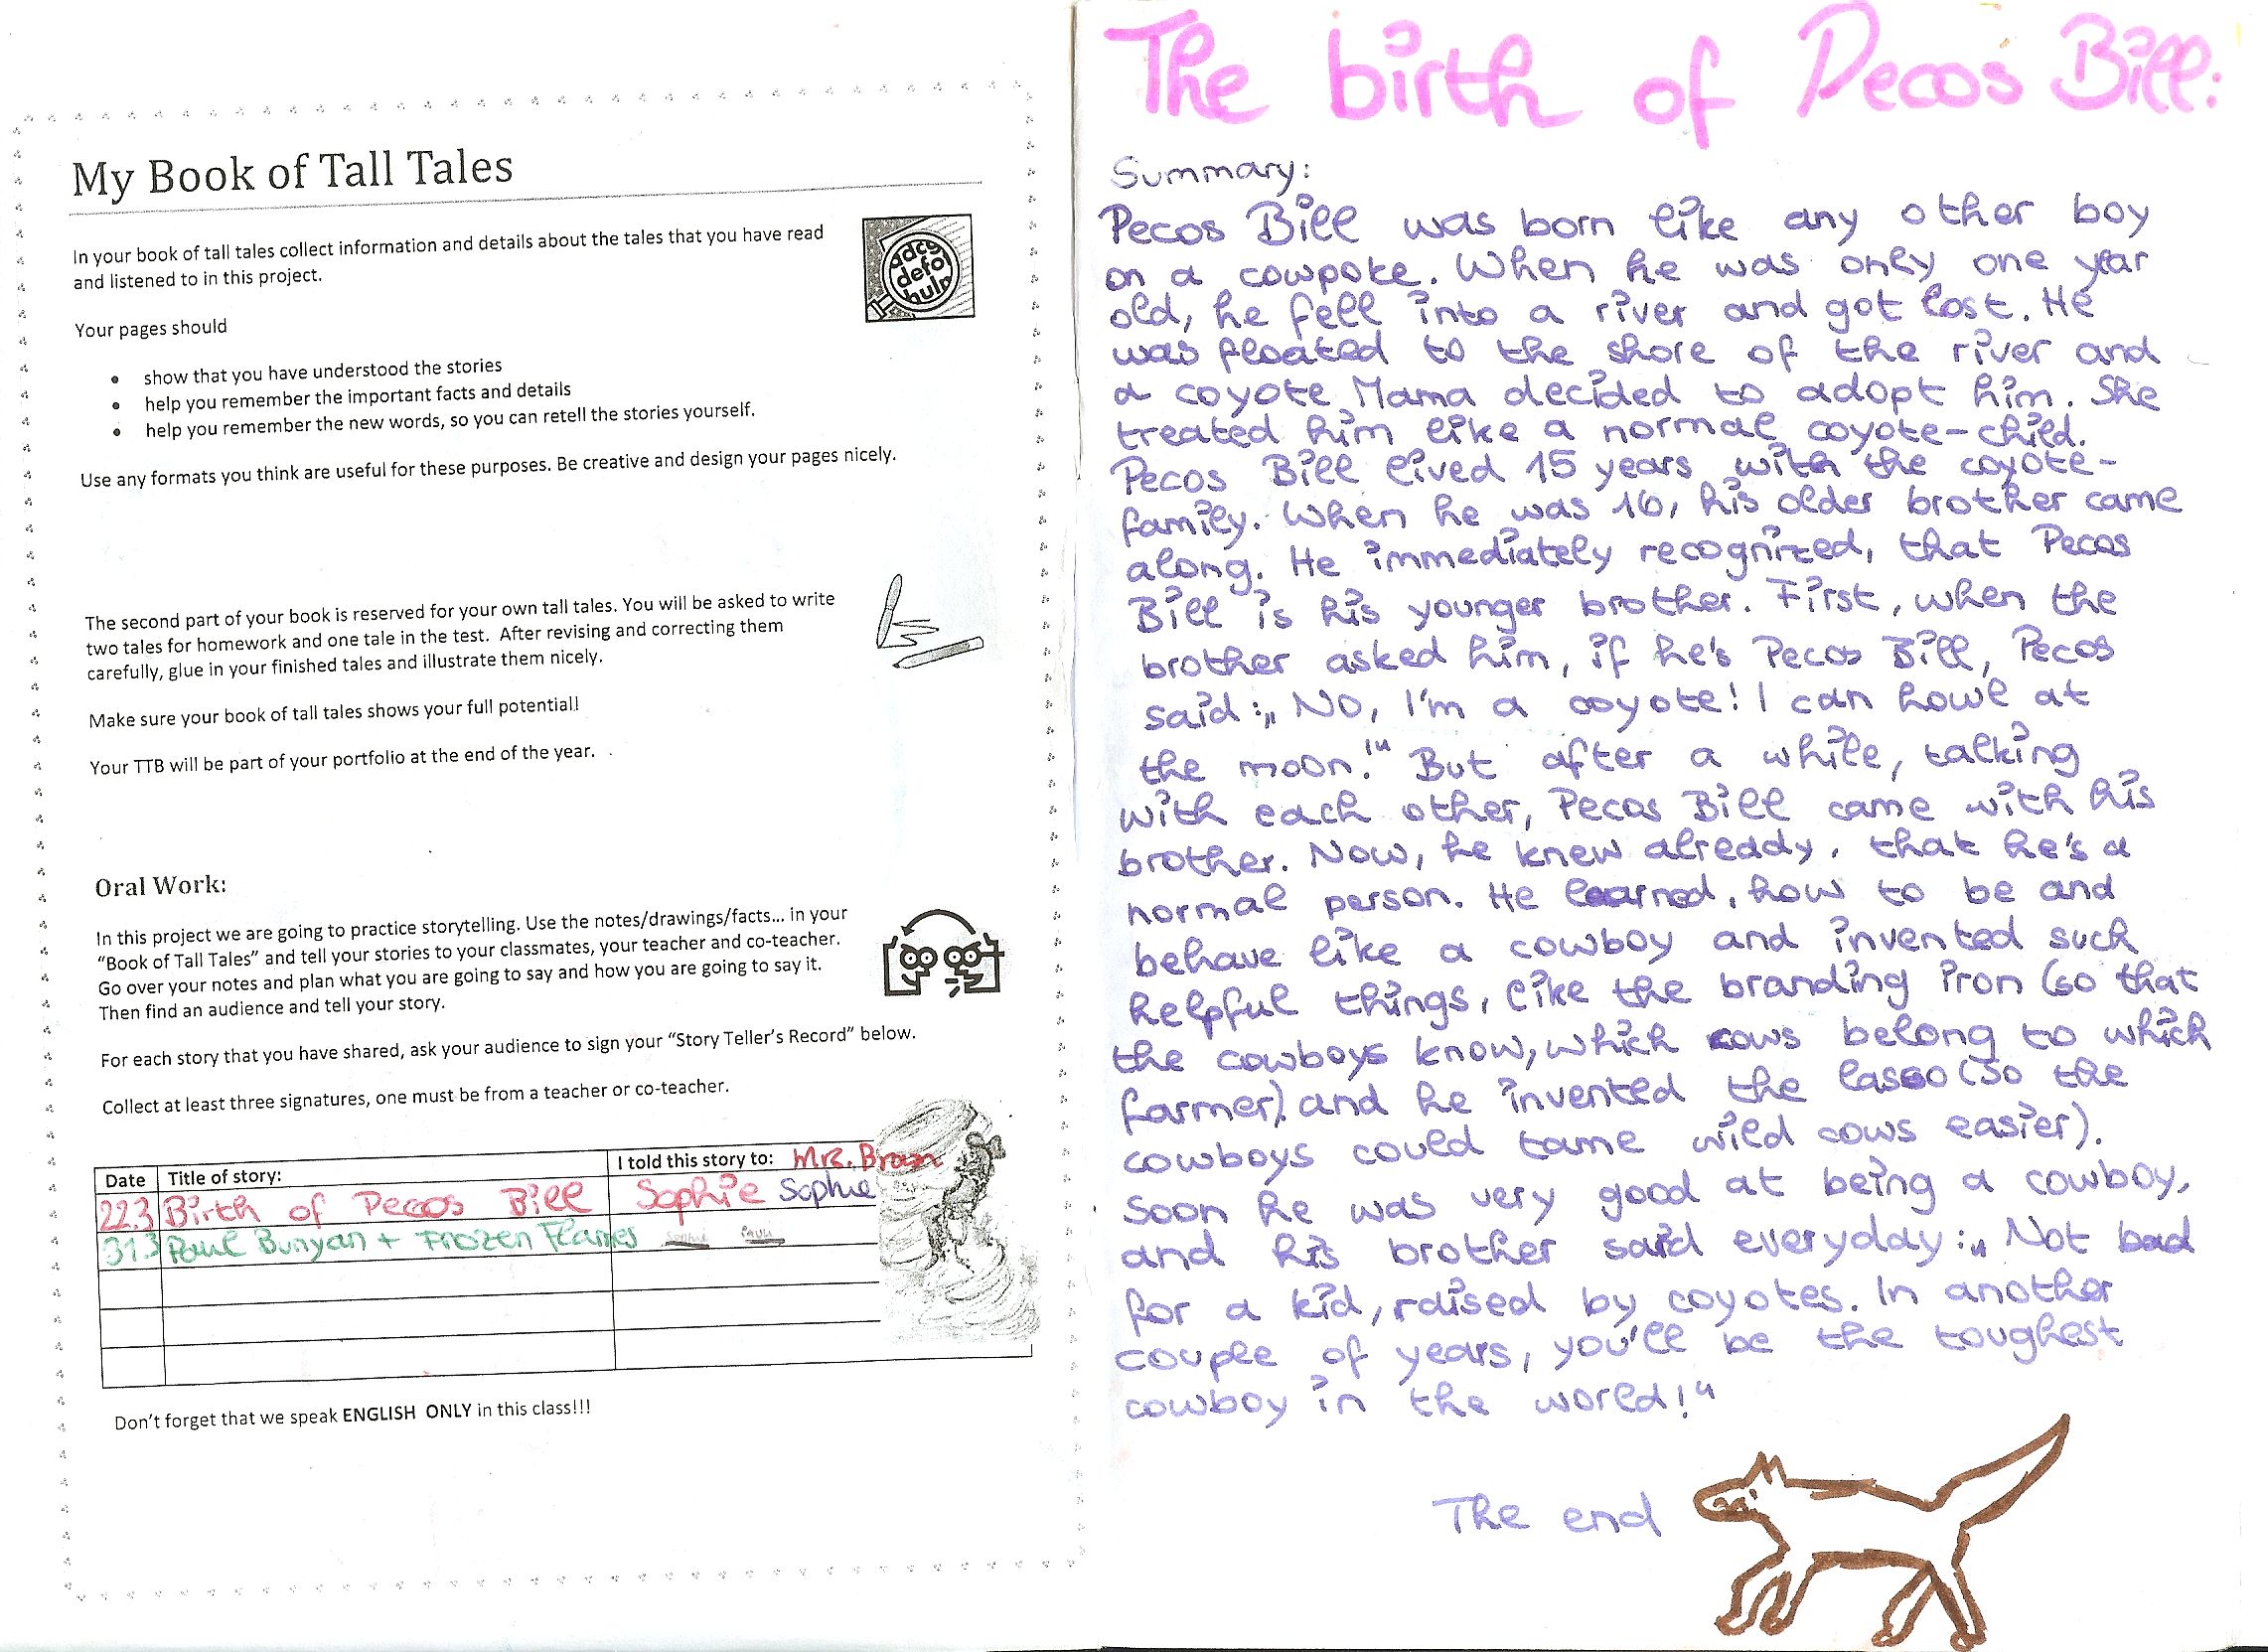 My Book of Tall Tales
In your book of tall tales collect information and details about the tales that you have read
and listened to in this project.
Your pages should
• show that you have understood the stories
• help you remember the important facts and details
• help you remember the new words, so you can retell the stories yourself.
Use any formats you think are useful for these purposes. Be creative and design your pages nicely.
The second part of your book is reserved for your own tall tales. You will be asked to write
two tales for homework and one tale in the test. After revising and correcting them
carefully, glue in your finished tales and illustrate them nicely.
Make sure your book of tall tales shows your full potential!
Your TTB will be part of your portfolio at the end of the year.
Oral Work:
In this project we are going to practice storytelling. Use the notes/drawings/facts... in your
“Book of Tall Tales” and tell your stories to your classmates, your teacher and co-teacher.
Go over your notes and plan what you are going to say and how you are going to say it.
Then find an audience and tell your story.
For each story that you have shared, ask your audience to sign your “Story Teller’s Record” below.
Collect at least three signatures, one must be from a teacher or co-teacher.
Date Title of story: I told this story to: Mrs. Brown
22.3 Birth of Pecos Bill Sophie Sophie
31.3 Paul Bunyan + Frozen Flames
Don’t forget that we speak ENGLISH ONLY in this class!!!
The birth of Pecos Bill:
Summary:
Pecos Bill was born like any other boy
on a cowpoke. When he was only one year
old, he fell into a river and got lost. He
was floated to the shore of the river and
a coyote Mama decided to adopt him. She
treated him like a normal coyote-child.
Pecos Bill lived 15 years with the coyote-
family. When he was 16, his older brother came
along. He immediately recognized, that Pecos
Bill is his younger brother. First, when the
brother asked him, if he's Pecos Bill, Pecos
said: „No, I'm a coyote! I can howl at
the moon!“ But after a while, talking
with each other, Pecos Bill came with his
brother. Now, he knew already, that he's a
normal person. He learned, how to be and
behave like a cowboy and invented such
helpful things, like the branding iron (so that
the cowboys know, which cows belong to which
farmer) and he invented the lasso (so the
cowboys could tame wild cows easier).
Soon he was very good at being a cowboy,
and his brother said everyday: „Not bad
for a kid, raised by coyotes. In another
couple of years, you'll be the toughest
cowboy in the world!“
The end